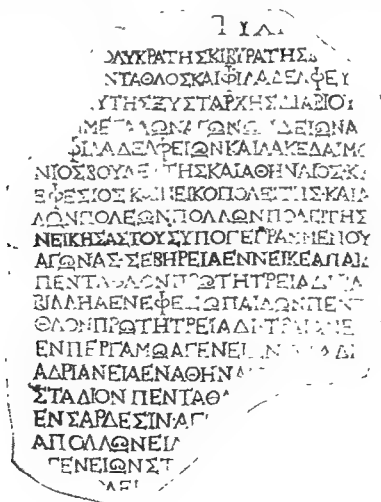 ΟΛΥΚΡΑΤΗΣΚΙΒΥΡΑΤΗΣ
ΝΤΑΘΛΟΣΚΑΙΦΙΛΑΔΕΛΦΕΥ
ΥΤΗΣΞΥΣΤΑΡΧΗΣΔΙΑΒΙΟΥ
ΜΕΓΑΛΩΝΑΓΩΝΩ ΔΕΙΩΝΑ
ΦΙΛΑΔΕΛΦΕΙΩΝΚΑΙΛΑΚΕΔΑΙΜΟ
ΝΙΟΣΒΟΥΛΕΥΤΗΣΚΑΙΑΘΗΝΑΙΟΣΚ
ΕΦΕΣΙΟΣΚΑΙΝΕΙΚΟΠΟΛΕΙΤΗΣΚΑΙΑ
ΛΩΝΠΟΛΕΩΝΠΟΛΛΩΝΠΟΛΕΙΤΗΣ
ΝΕΙΚΗΣΑΣΤΟΥΣΥΠΟΓΕΓΡΑΜΜΕΝΟΥ
ΑΓΩΝΑΣ·ΣΕΒΗΡΕΙΑΕΝΝΕΙΚΕΑΠΑΙΔ
ΠΕΝΤΑΘΛΟΝΠΡΩΤΗΤΡΕΙΑΔΙ
ΒΙΛΛΗΑΕΝΕΦΕΣΩΠΑΙΔΩΝΠΕΝΤ
ΘΛΟΝΠΡΩΤΗΤΡΕΙΑΔΙ
ΕΝΠΕΡΓΑΜΩΑΓΕΝΕΙ
ΑΔΡΙΑΝΕΙΑΕΝΑΘΗΝΑ
ΣΤΑΔΙΟΝΠΕΝΤΑΘΛ
ΕΝΣΑΡΔΕΣΙΝ·ΑΓ
ΑΠΟΛΛΩΝΕΙΑ
ΓΕΝΕΙΩΝΣΤ